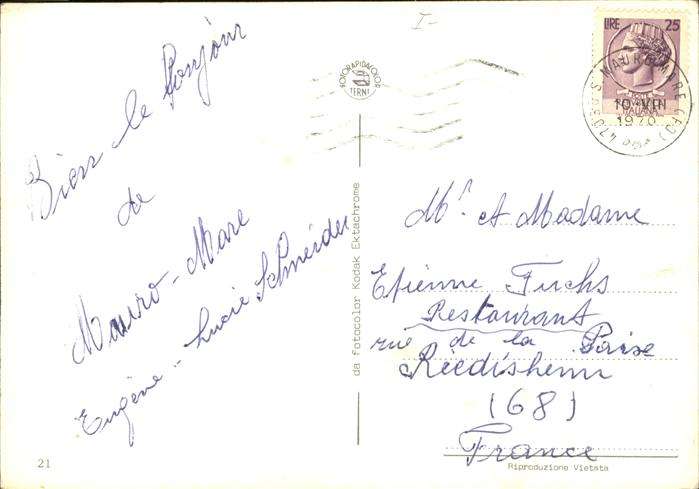 I-
Bien le Bonjour
de
Mauro-Mare
Eugène - Lucie Schneider
21
FOTORAPIDACOLOR
TERNI
da fotocolor Kodak Ektachrome
LIRE 25
POSTE
ITALIANA
S. MAURO MARE (FO)
10 VII
1970
Mr. et Madame
Etienne Fuchs
Restaurant
rue de la Paix
Riedisheim
(68)
France
Riproduzione Vietata